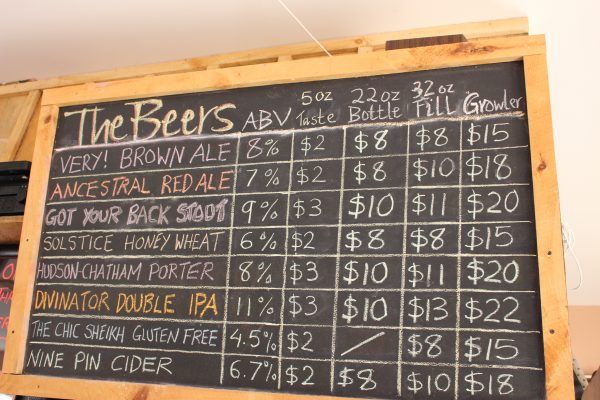 The Beers ABV 5 oz Taste 22 oz Bottle 32 oz Fill Growler
VERY! BROWN ALE 8% $2 $8 $8 $15
ANCESTRAL RED ALE 7% $2 $8 $10 $18
GOT YOUR BACK STOUT 9% $3 $10 $11 $20
SOLSTICE HONEY WHEAT 6% $2 $8 $8 $15
HUDSON-CHATHAM PORTER 8% $3 $10 $11 $20
DIVINATOR DOUBLE IPA 11% $3 $10 $13 $22
THE CHIC SHEIKH GLUTEN FREE 4.5% $2 / $8 $15
NINE PIN CIDER 6.7% $2 $8 $10 $18